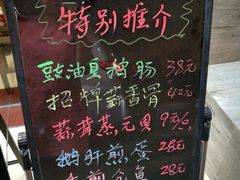 特别推介
豉油皇鹅肠 38元
招牌蒜香骨 42元
蒜茸蒸元贝 9元/只
鹅肝煎蛋 28元
28元